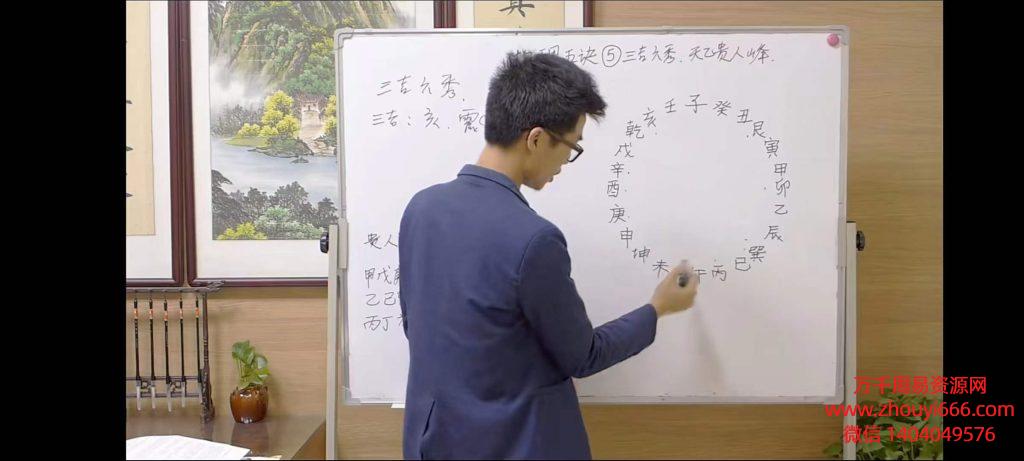 真
五诀⑤三吉六秀.天乙贵人峰.
三吉六秀.
三吉：亥.震
贵人
甲戊
乙己
丙丁
壬子癸丑艮寅甲卯乙辰巽巳丙午
未坤申庚酉辛戌乾亥
万千周易资源网
www.zhouyi666.com
微信 1404049576